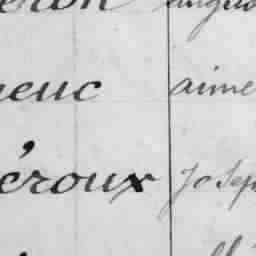 eron
neuc aime
éroux Josep